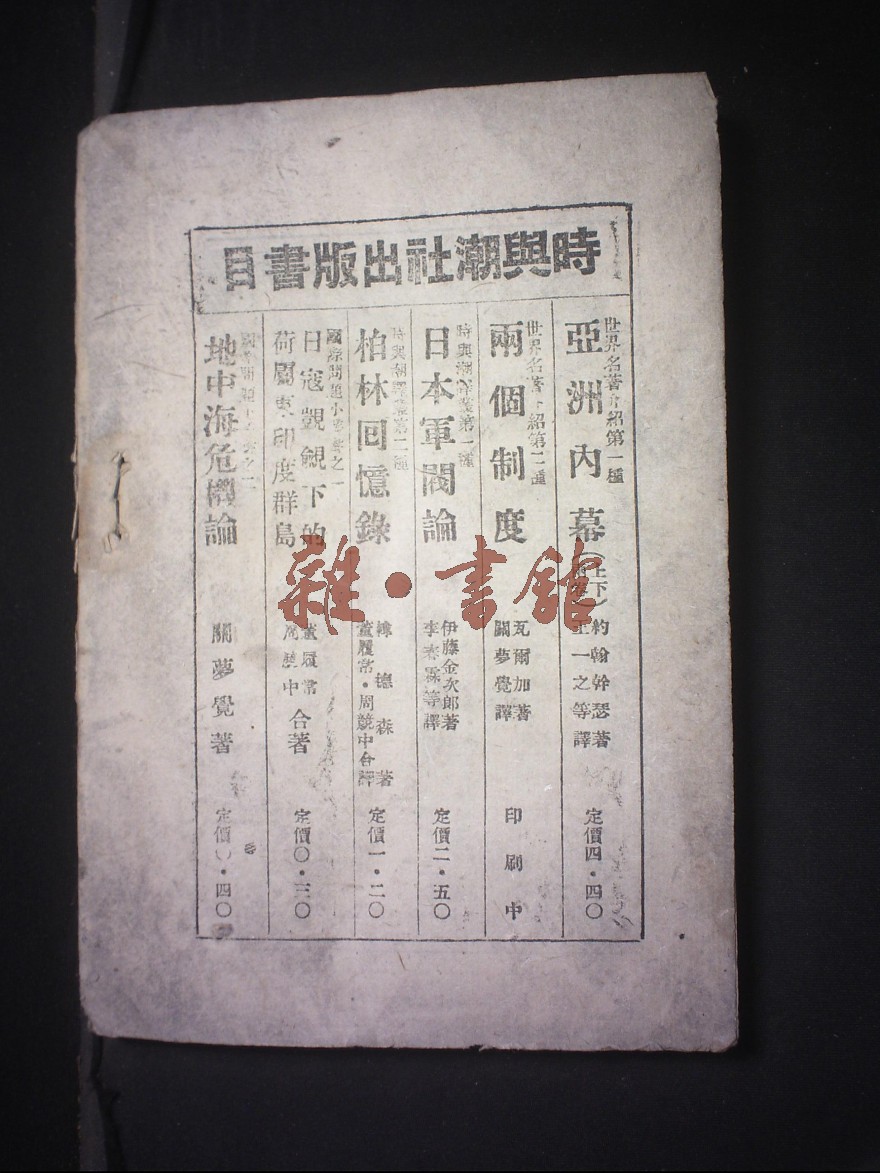 時與潮社出版書目
世界名著介紹第一種
亞洲內幕(上下
約翰幹瑟著
王一之等譯
定價四·四〇
世界名著介紹第二種
兩個制度
瓦爾加著
關夢覺譯
印刷中
時與潮譯叢第一種
日本軍閥論
伊藤金次郎著
李春霖等譯
定價二·五〇
時與潮譯叢第二種
柏林回憶錄
德森著
董履常·周競中合譯
定價一·二〇
國際問題小叢書之一
日寇覬覦下的
荷屬東印度群島
董履常
周競中
合著
定價〇·三〇
國際問題小叢書之二
地中海危機論
關夢覺著
定價〇·四〇
雜·書館